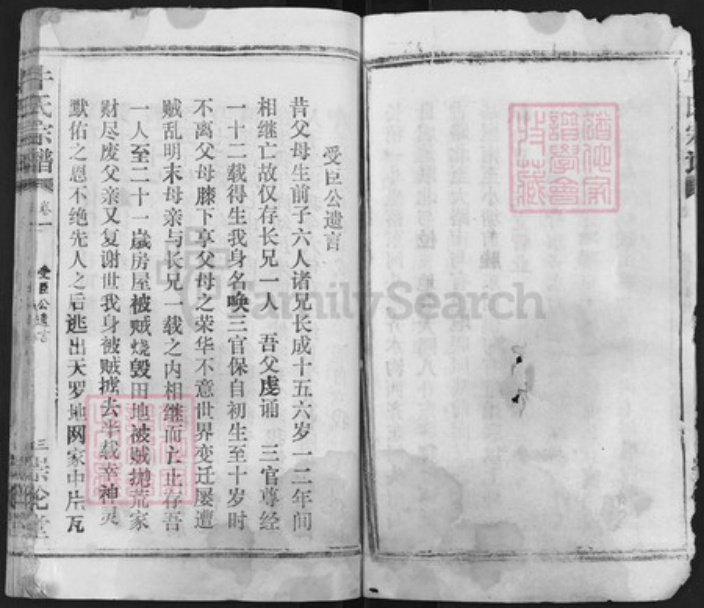 受臣公遗言
昔父母生前子六人诸兄长成十五六岁一二年间
相继亡故仅存长兄一人 吾父虔诵 三官尊经
一十二载得生我身名唤三官保自初生至十岁时
不离父母膝下享父母之荣华不意世界变迁屡遭
贼乱明末母亲与长兄一载之内相继而亡止存吾
一人至二十一岁房屋被贼烧毁田地被贼抛荒家
财尽废父亲又复谢世我身被贼掳去半载幸神灵
默佑之恩不绝先人之后逃出天罗地网家中片瓦
氏宗谱
卷一
受臣公遗言
三
FamilySearch